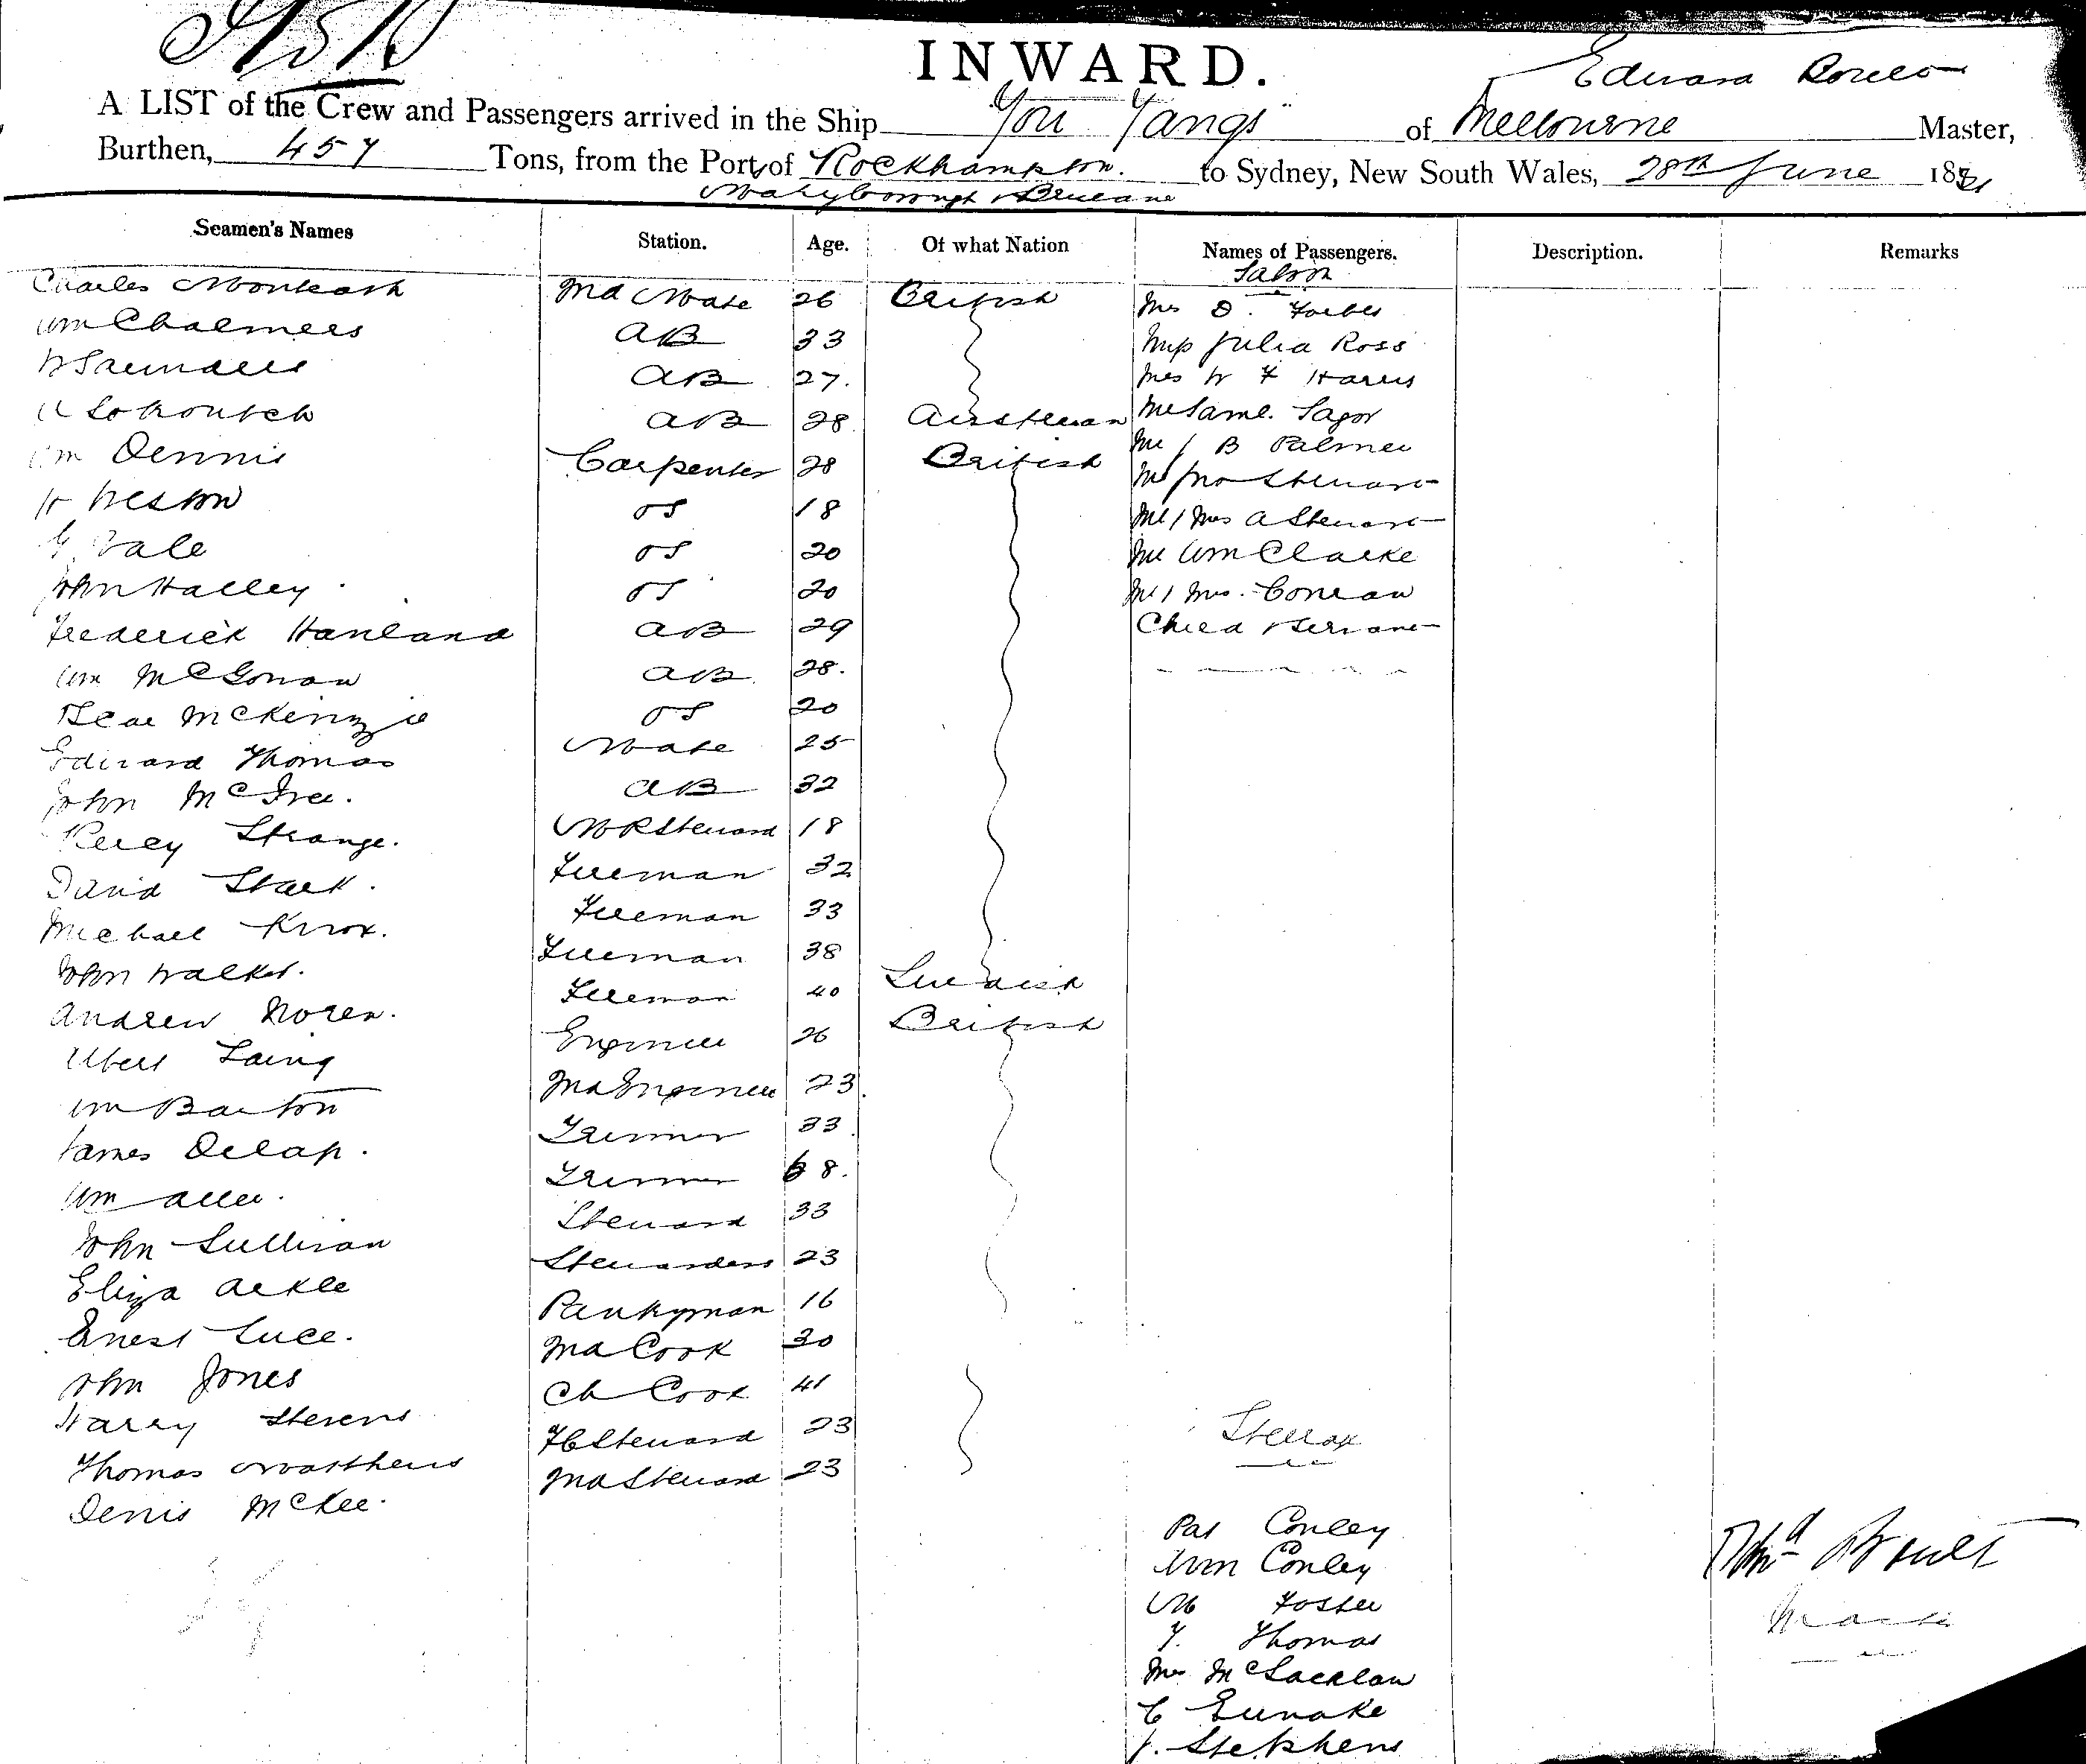 INWARD.
Edward
A LIST of the Crew and Passengers arrived in the Ship "You Yangs" of Melbourne Master,
Burthen, 457 Tons, from the Port of Rockhampton. to Sydney, New South Wales, 28th June 1881
Maryborough & Brisbane
Seamen's Names Station. Age. Of what Nation Names of Passengers. Description. Remarks
Saloon
Charles 2nd Mate 26 British Mrs D. Forbes
Wm Chalmers AB 33 Miss Julia Ross
Saunders AB 27. Mrs W F Harris
AB 28 Austrian Mr Saml.
Wm Dennis Carpenter 28 British Mr J B Palmer
H Weston OS 18 Mr Jno Stewart
G. Vale OS 20 Mr & Mrs A Stewart
John Halley OS 20 Mr Wm Clarke
Frederick AB 29 Mr & Mrs. Conran
Wm McGowan AB 28. Child & Servant
McKenzie OS 20
Edward Thomas Mate 25
John McIvee. AB 32
Percy Strange. MR Steward 18
David Stark. Fireman 32
Michael Knox. Fireman 33
John Walker. Fireman 38
Andrew Noren. Fireman 40 Swedish
Albert Laing Engineer 26 British
Wm Barton 2nd Engineer 23
James Delap. Trimmer 33
Wm Allen. Trimmer 8.
John Sullivan Steward 33
Eliza Stewardess 23
Ernest Luce. Pantryman 16
John Jones 2nd Cook 30
Harry Stevens Ch Cook 41
Thomas Matthews FC Steward 23
Denis McKee. 2nd Steward 23
Steerage
Pat Conley
Wm Conley
M Foster
T. Thomas
Mrs McLachlan
C
J. Stephens
Master